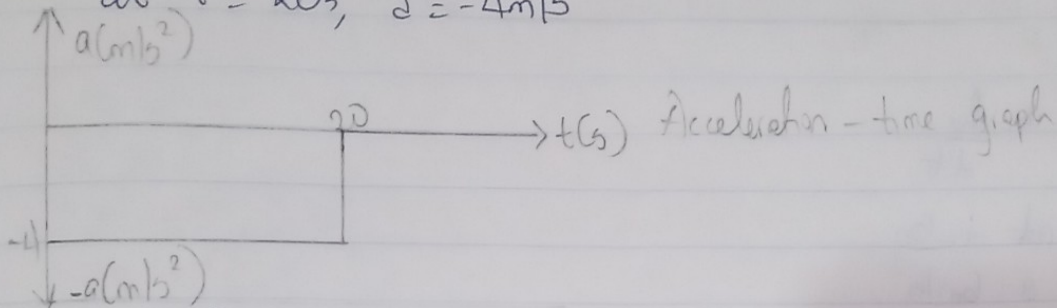 t = 20s, a = -4m/s
a(m/s²)
20
t(s) Acceleration - time graph
-4
-a(m/s²)